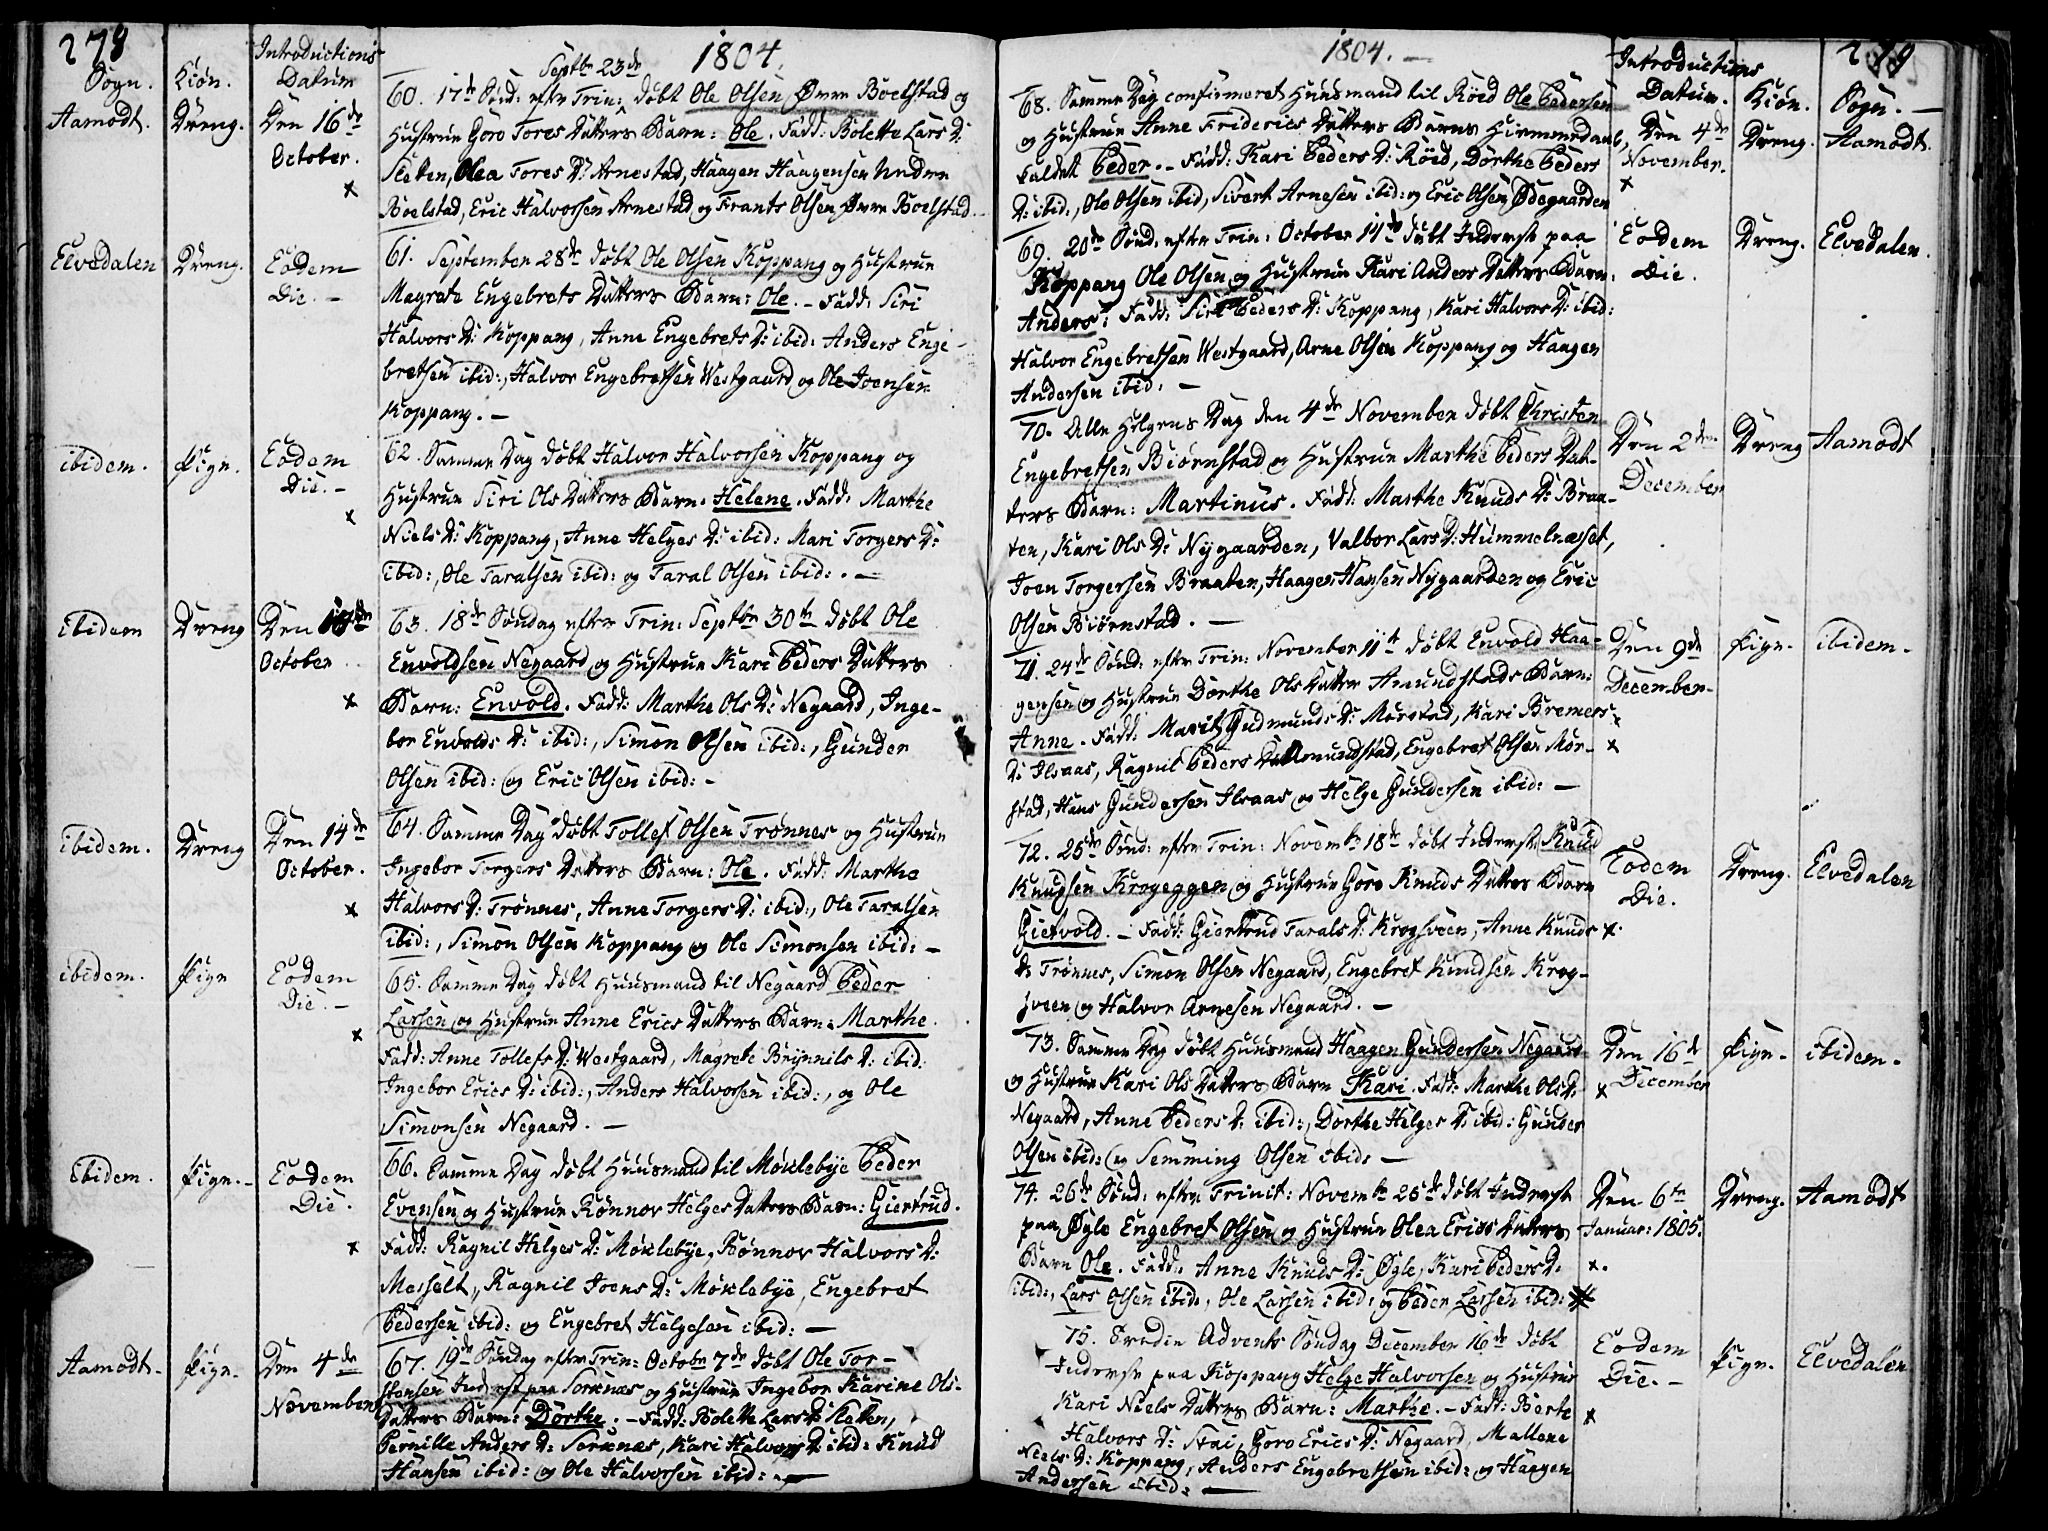 278
1804.
Sogn.
Kiøn.
Introductions
Datum
Aamodt.
Dreng.
Den 16de
October.
Septbr 23de
60. 17de Sønd: efter Trin: døbt Ole Olsen Øvre Boelstad og
Hustrue Goro Tores Datters Barn: Ole. Fadd: Bolette Lars D:
Sletten, Olea Tores D: Arnestad, Haagen Haagensen Nedre
Boelstad, Eric Halvorsen Arnestad og Frants Olsen Øvre Boelstad.
Elvedalen
Dreng.
Eodem
Die. –
61. September 28de døbt Ole Olsen Koppang og Hustrue
Magrete Engebrets Datters Barn: Ole. – Fadd: Siri
Halvors D: Koppang, Anne Engebrets D: ibid: Anders Enge-
bretsen ibid:, Halvor Engebretsen Westgaard og Ole Joensen
Koppang. –
ibidem.
Pige.
Eodem
Die. –
x
62. Samme Dag døbt Halvor Halvorsen Koppang og
Hustrue Siri Ols Datters Barn. Helene. Fadd: Marthe
Niels D: Koppang, Anne Helges D: ibid: Mari Torgers D:
ibid:, Ole Taralsen ibid: og Taral Olsen ibid:. –
ibidem
Dreng
Den
October
x
63. 18de Søndag efter Trin: Septbr 30te døbt Ole
Envoldsen Negaard og Hustrue Kari Peders Datters
Barn: Envold. Fadd: Marthe Ols D: Negaard, Inge-
bor Envolds D: ibid:, Simon Olsen ibid:, Gunder
Olsen ibid: og Eric Olsen ibid: –
ibidem.
Dreng
Den 14de
October.
x
64. Samme Dag døbt Tollef Olsen Trønnes og Hustrue
Ingebor Torgers Datters Barn: Ole. Fadd: Marthe
Halvors D: Trønnes, Anne Torgers D: ibid:, Ole Taralsen
ibid:, Simon Olsen Koppang og Ole Simonsen ibid: –
ibidem.
Pige
Eodem
Die. –
x
65. Samme Dag døbt Huusmand til Negaard Peder
Larsen og Hustrue Anne Erics Datters Barn: Marthe.
Fadd: Anne Tollefs D: Westgaard, Magrete Brynnils D: ibid:
Ingebor Erics D: ibid:, Anders Halvorsen ibid:, og Ole
Simonsen Negaard. –
ibidem.
Pige. –
Eodem
Die.
x
66. Samme Dag døbt Huusmand til Møclebye Peder
Evensen og Hustrue Rønnov Helges Datters Barn: Giertrud.
Fadd: Ragnil Helges D: Møclebye, Rønnov Halvors D:
Messelt, Ragnil Joens D: Møclebye, Engebret
Pedersen ibid: og Engebret Helgesen ibid: –
Aamodt.
Pige.
Den 4de
November
67. 19de Søndag efter Trin: Octobr 7de døbt Ole Tor-
stensen Inderst paa Sorknæs og Hustrue Ingebor Karine Ols-
Datters Barn: Dorthe. – Fadd: Bolette Lars D: Sletten,
Pernille Anders D: Sorknæs, Kari Halvors D: ibid: Knud
Hansen ibid: og Ole Halvorsen ibid: –
1804. –
279
Introductions
Datum.
Kiøn.
Sogn. –
68. Samme Dag confirmeret Huusmand til Røed Ole Pedersen
og Hustrue Anne Friderics Datters Barns Hiemmedaab,
kaldet Peder. – Fadd: Kari Peders D: Røed, Dorthe Peders
D: ibid:, Ole Olsen ibid, Sivert Arnesen ibid: og Eric Olsen Ødegaarden
Den 4de
November.
x
Dreng.
Aamodt.
69. 20de Sønd: efter Trin: October 14de døbt Inderst paa
Koppang Ole Olsen og Hustrue Kari Anders Datters Barn:
Anders: Fadd: Siri Peders D: Koppang, Kari Halvors D: ibid:
Halvor Engebretsen Westgaard, Arne Olsen Koppang og Haagen
Andersen ibid: –
Eodem
Die.
Dreng.
Elvedalen.
70. Alle Helgens Dag den 4de November døbt Christen
Engebretsen Biørnstad og Hustrue Marthe Peders Dat-
ters Barn: Martinus. Fadd: Marthe Knuds D: Braa-
ten, Kari Ols D: Nygaarden, Valbor Lars D: Hummelnæsset,
Joen Torgersen Braaten, Haagen Hansen Nygaarden og Eric
Olsen Biørnstad. –
Den 2den
December
Dreng
Aamodt
71. 24de Sønd: efter Trin: November 11te døbt Envold Haa-
gensen og Hustrue Dorthe Ols Datter Amundstads Barn:
Anne. Fadd: Marit Gudmunds D: Mørstad, Kari Bremers
D: Ilsaas, Ragnil Peders Datter Amundstad, Engebret Olsen Mør-
stad, Hans Gundersen Ilsaas og Helge Gundersen ibid: –
Den 9de
December.
x
x
Pige.
ibidem.
72. 25de Sønd: efter Trin: Novembr 18de døbt Inderst: Knud
Knudsen Krogeggen og Hustrue Goro Knuds Datters Barn
Gietvold. – Fadd: Giertrud Tarals D: Krogsveen, Anne Knuds
D: Trønnes, Simon Olsen Negaard, Engebret Knudsen Krog-
sveen og Halvor Arnesen Negaard. –
Eodem
Die.
x
Dreng.
Elvedalen
73. Samme Dag døbt Huusmand Haagen Gundersen Negaard
og Hustrue Kari Ols Datters Barn Kari. Fadd: Marthe Ols D:
Negaard, Anne Peders D: ibid:, Dorthe Helges D: ibid: Gunder
Olsen ibid: og Semming Olsen ibid: –
Den 16de
December
x
Pige.
ibidem.
74. 26de Sønd: efter Trinit: Novembr 25de døbt Inderst
paa Øgle Engebret Olsen og Hustrue Olea Erics Datters
Barn Ole. Fadd: Anne Knuds D: Øgle, Kari Peders D:
ibid:, Lars Olsen ibid:, Ole Larsen ibid: og Peder Larsen ibid:
Den 6te
Januar: 1805.
x.
Dreng.
Aamodt
75. Tredie Advents Søndag December 16de døbt
Inderst paa Koppang Helge Halvorsen og Hustrue
Kari Niels Datters Barn: Marthe. – Fadd: Berte
Halvors D: Stai, Goro Erics D: Negaard, Mallene
Niels D: Koppang, Anders Engebretsen ibid: og Haagen
Andersen ibid: –
Eodem
Die. –
x
Pige.
Elvedalen